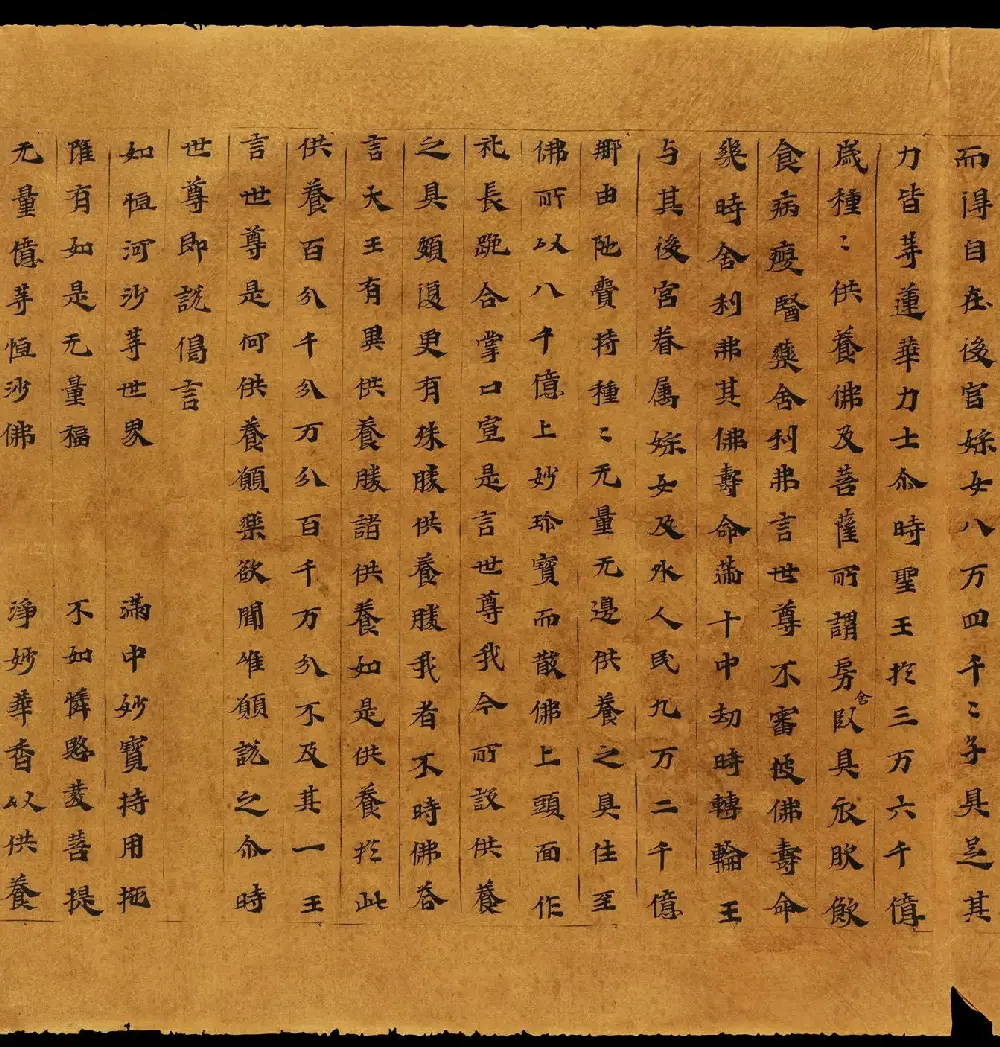 而得自在後官婇女八万四千〻子具足其
力皆等蓮華力士尒時聖王扵三万六千億
歲種〻供養佛及菩薩所謂房舍卧具衣服飲
食病瘦醫藥舍利弗言世尊不審彼佛壽命
幾時舍利弗其佛壽命滿十中劫時轉輪王
与其後宮眷属婇女及水人民九万二千億
那由他賷持種〻无量无邊供養之具住至
佛所以八千億上妙珎寶而散佛上頭面作
礼長跪合掌口宣是言世尊我今所設供養
之具頗復更有殊勝供養勝我者不時佛荅
言天王有異供養勝諸供養如是供養扵此
供養百分千分万分百千万分不及其一王
言世尊是何供養願樂欲聞唯願說之尒時
世尊即說偈言
如恒河沙等世界 滿中妙寶持用施
雖有如是无量福 不如憐愍發菩提
无量億等恒沙佛 淨妙華香以供養